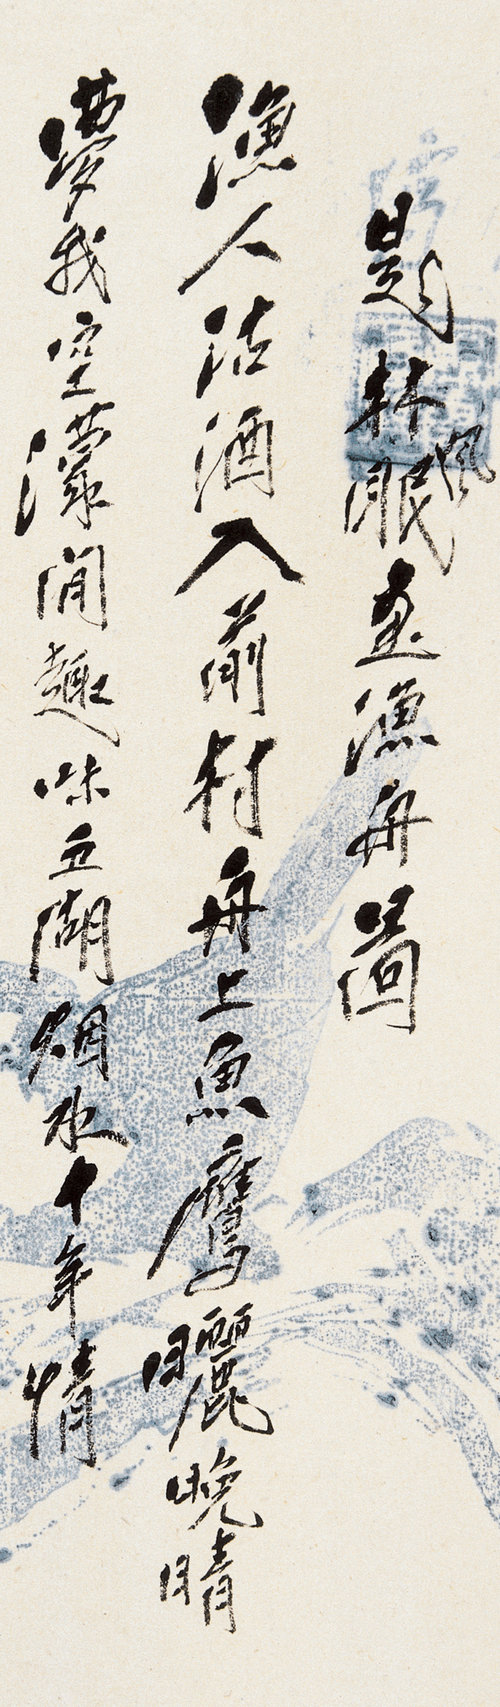 題林風眠畫漁舟圖
漁人沽酒入前村舟上魚鷹曬晚晴
夢我空濛閒趣味五湖烟水十年情